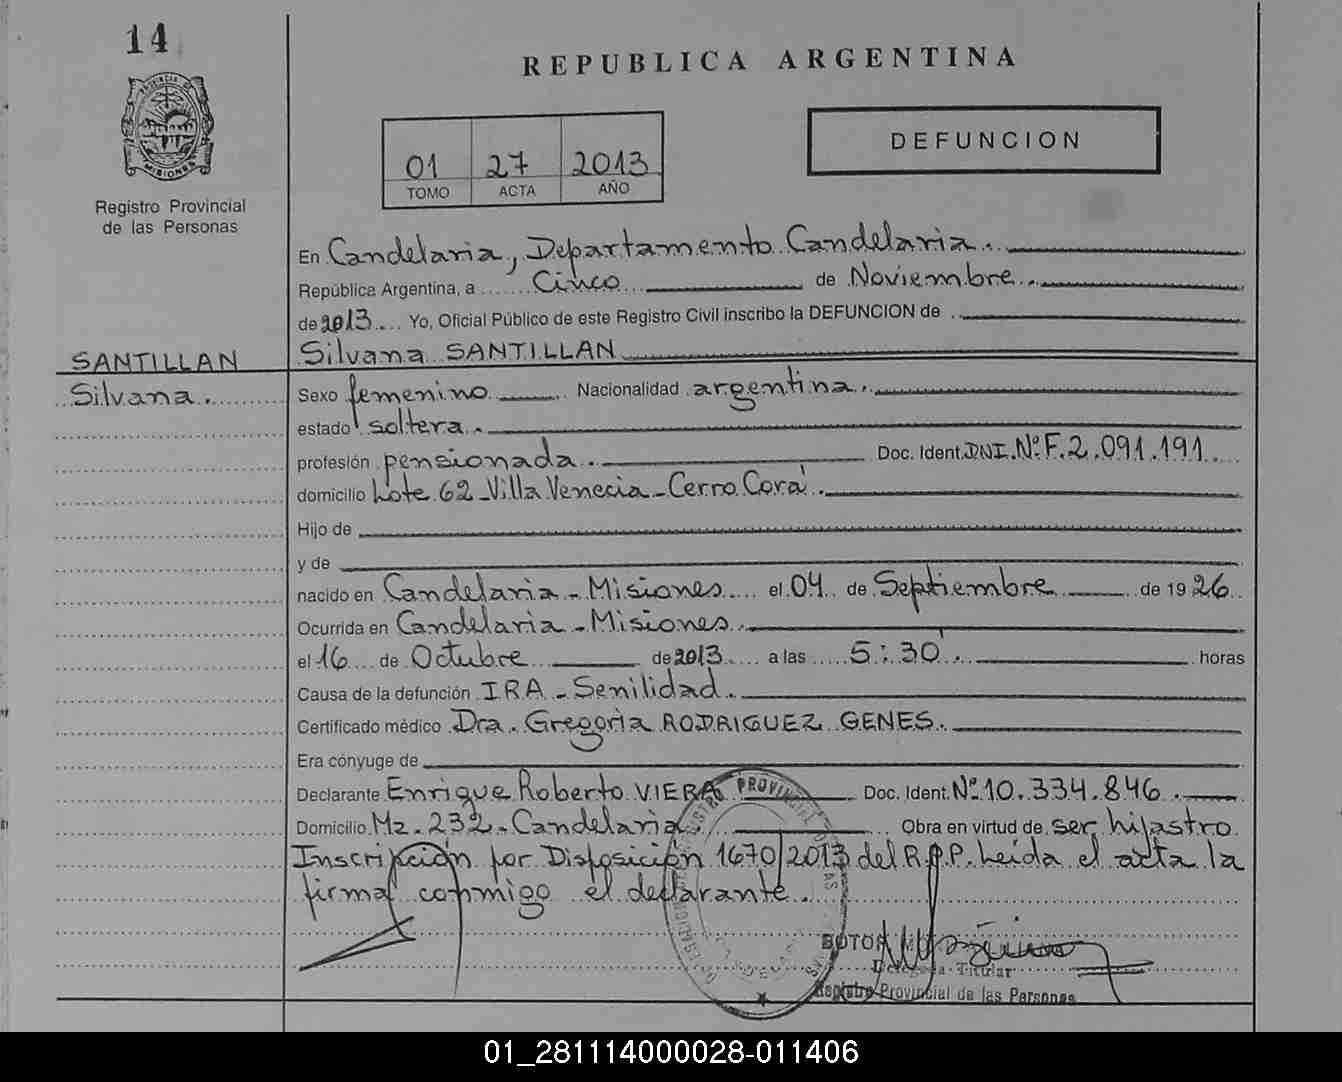 14
REPUBLICA ARGENTINA
PROVINCIA DE
MISIONES
Registro Provincial
de las Personas
01 27 2013
TOMO ACTA AÑO
DEFUNCION
En Candelaria, Departamento Candelaria.
República Argentina, a Cinco de Noviembre
de 2013 Yo, Oficial Público de este Registro Civil inscribo la DEFUNCION de
SANTILLAN Silvana SANTILLAN
Silvana. Sexo femenino Nacionalidad argentina.
estado soltera.
profesión pensionada. Doc. Ident. DNI. Nº F. 2.091.191
domicilio Lote 62 - Villa Venecia - Cerro Corá.
Hijo de
y de
nacido en Candelaria - Misiones el 04 de Septiembre de 1926
Ocurrida en Candelaria - Misiones.
el 16 de Octubre de 2013 a las 5:30'. horas
Causa de la defunción IRA - Senilidad.
Certificado médico Dra. Gregoria RODRIGUEZ GENES.
Era cónyuge de
Declarante Enrique Roberto VIERA Doc. Ident. Nº 10.334.846.
Domicilio Mz. 232 - Candelaria. Obra en virtud de ser hijastro
Inscripción por Disposición 1670/2013 del R.P.P. Leída el acta la
firma conmigo el declarante.
Delegada Titular
Registro Provincial de las Personas
01_281114000028-011406